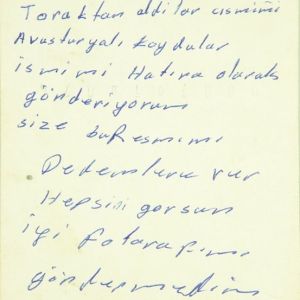 Toraktan aldilar ismimi
Avusturyalı koydular
ismimi Hatıra olarak
gönderiyorum
size bu Resmımı
Dedemlere ver
Hepsini gorsun
iyi fotarafımı
göndermedim